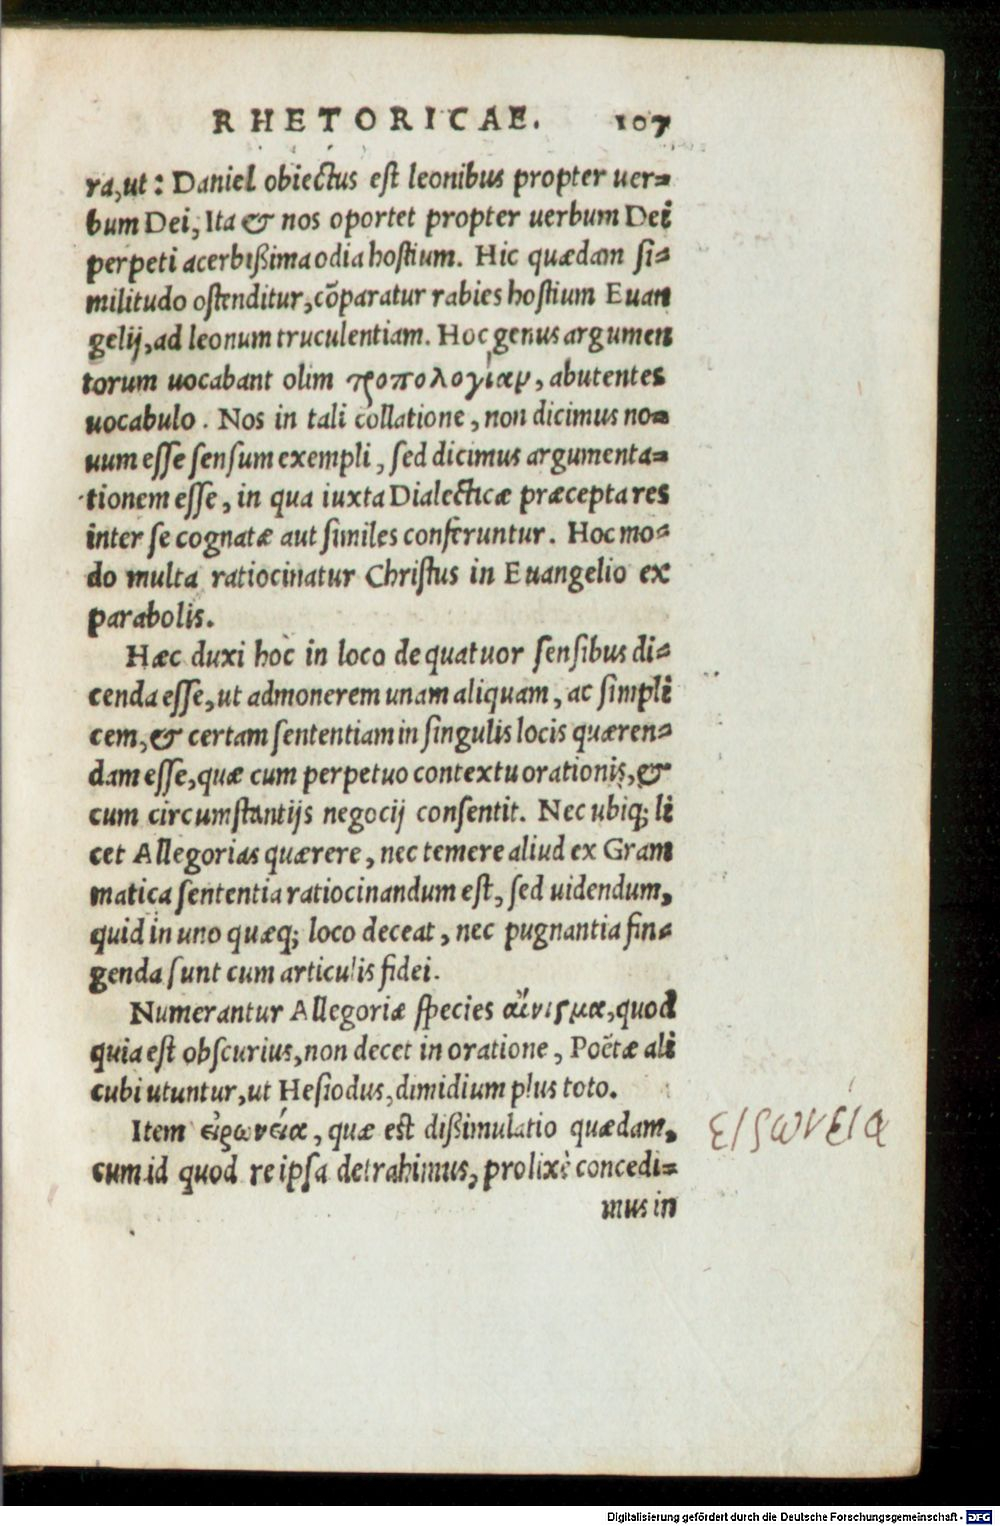 RHETORICAE. 107
ra, ut: Daniel obiectus est leonibus propter uer=
bum Dei, Ita & nos oportet propter uerbum Dei
perpeti acerbißima odia hostium. Hic quædam si=
militudo ostenditur, cõparatur rabies hostium Euan
gelij, ad leonum truculentiam. Hoc genus argumen
torum uocabant olim τροπολογίαν, abutentes
uocabulo. Nos in tali collatione, non dicimus no=
uum esse sensum exempli, sed dicimus argumenta=
tionem esse, in qua iuxta Dialecticæ præcepta res
inter se cognatæ aut similes conferuntur. Hoc mo=
do multa ratiocinatur Christus in Euangelio ex
parabolis.
Hæc duxi hoc in loco de quatuor sensibus di=
cenda esse, ut admonerem unam aliquam, ac simpli
cem, & certam sententiam in singulis locis quæren=
dam esse, quæ cum perpetuo contextu orationis, &
cum circumstantijs negocij consentit. Nec ubiq; li
cet Allegorias quærere, nec temere aliud ex Gram
matica sententia ratiocinandum est, sed uidendum,
quid in uno quæq; loco deceat, nec pugnantia fin=
genda sunt cum articulis fidei.
Numerantur Allegoriæ species αἴνιγμα, quod
quia est obscurius, non decet in oratione, Poëtæ ali
cubi utuntur, ut Hesiodus, dimidium plus toto.
Item εἰρωνεία, quæ est dißimulatio quædam,
cum id quod re ipsa detrahimus, prolixè concedi=
mus in
εἰρωνεία
Digitalisierung gefördert durch die Deutsche Forschungsgemeinschaft - DFG